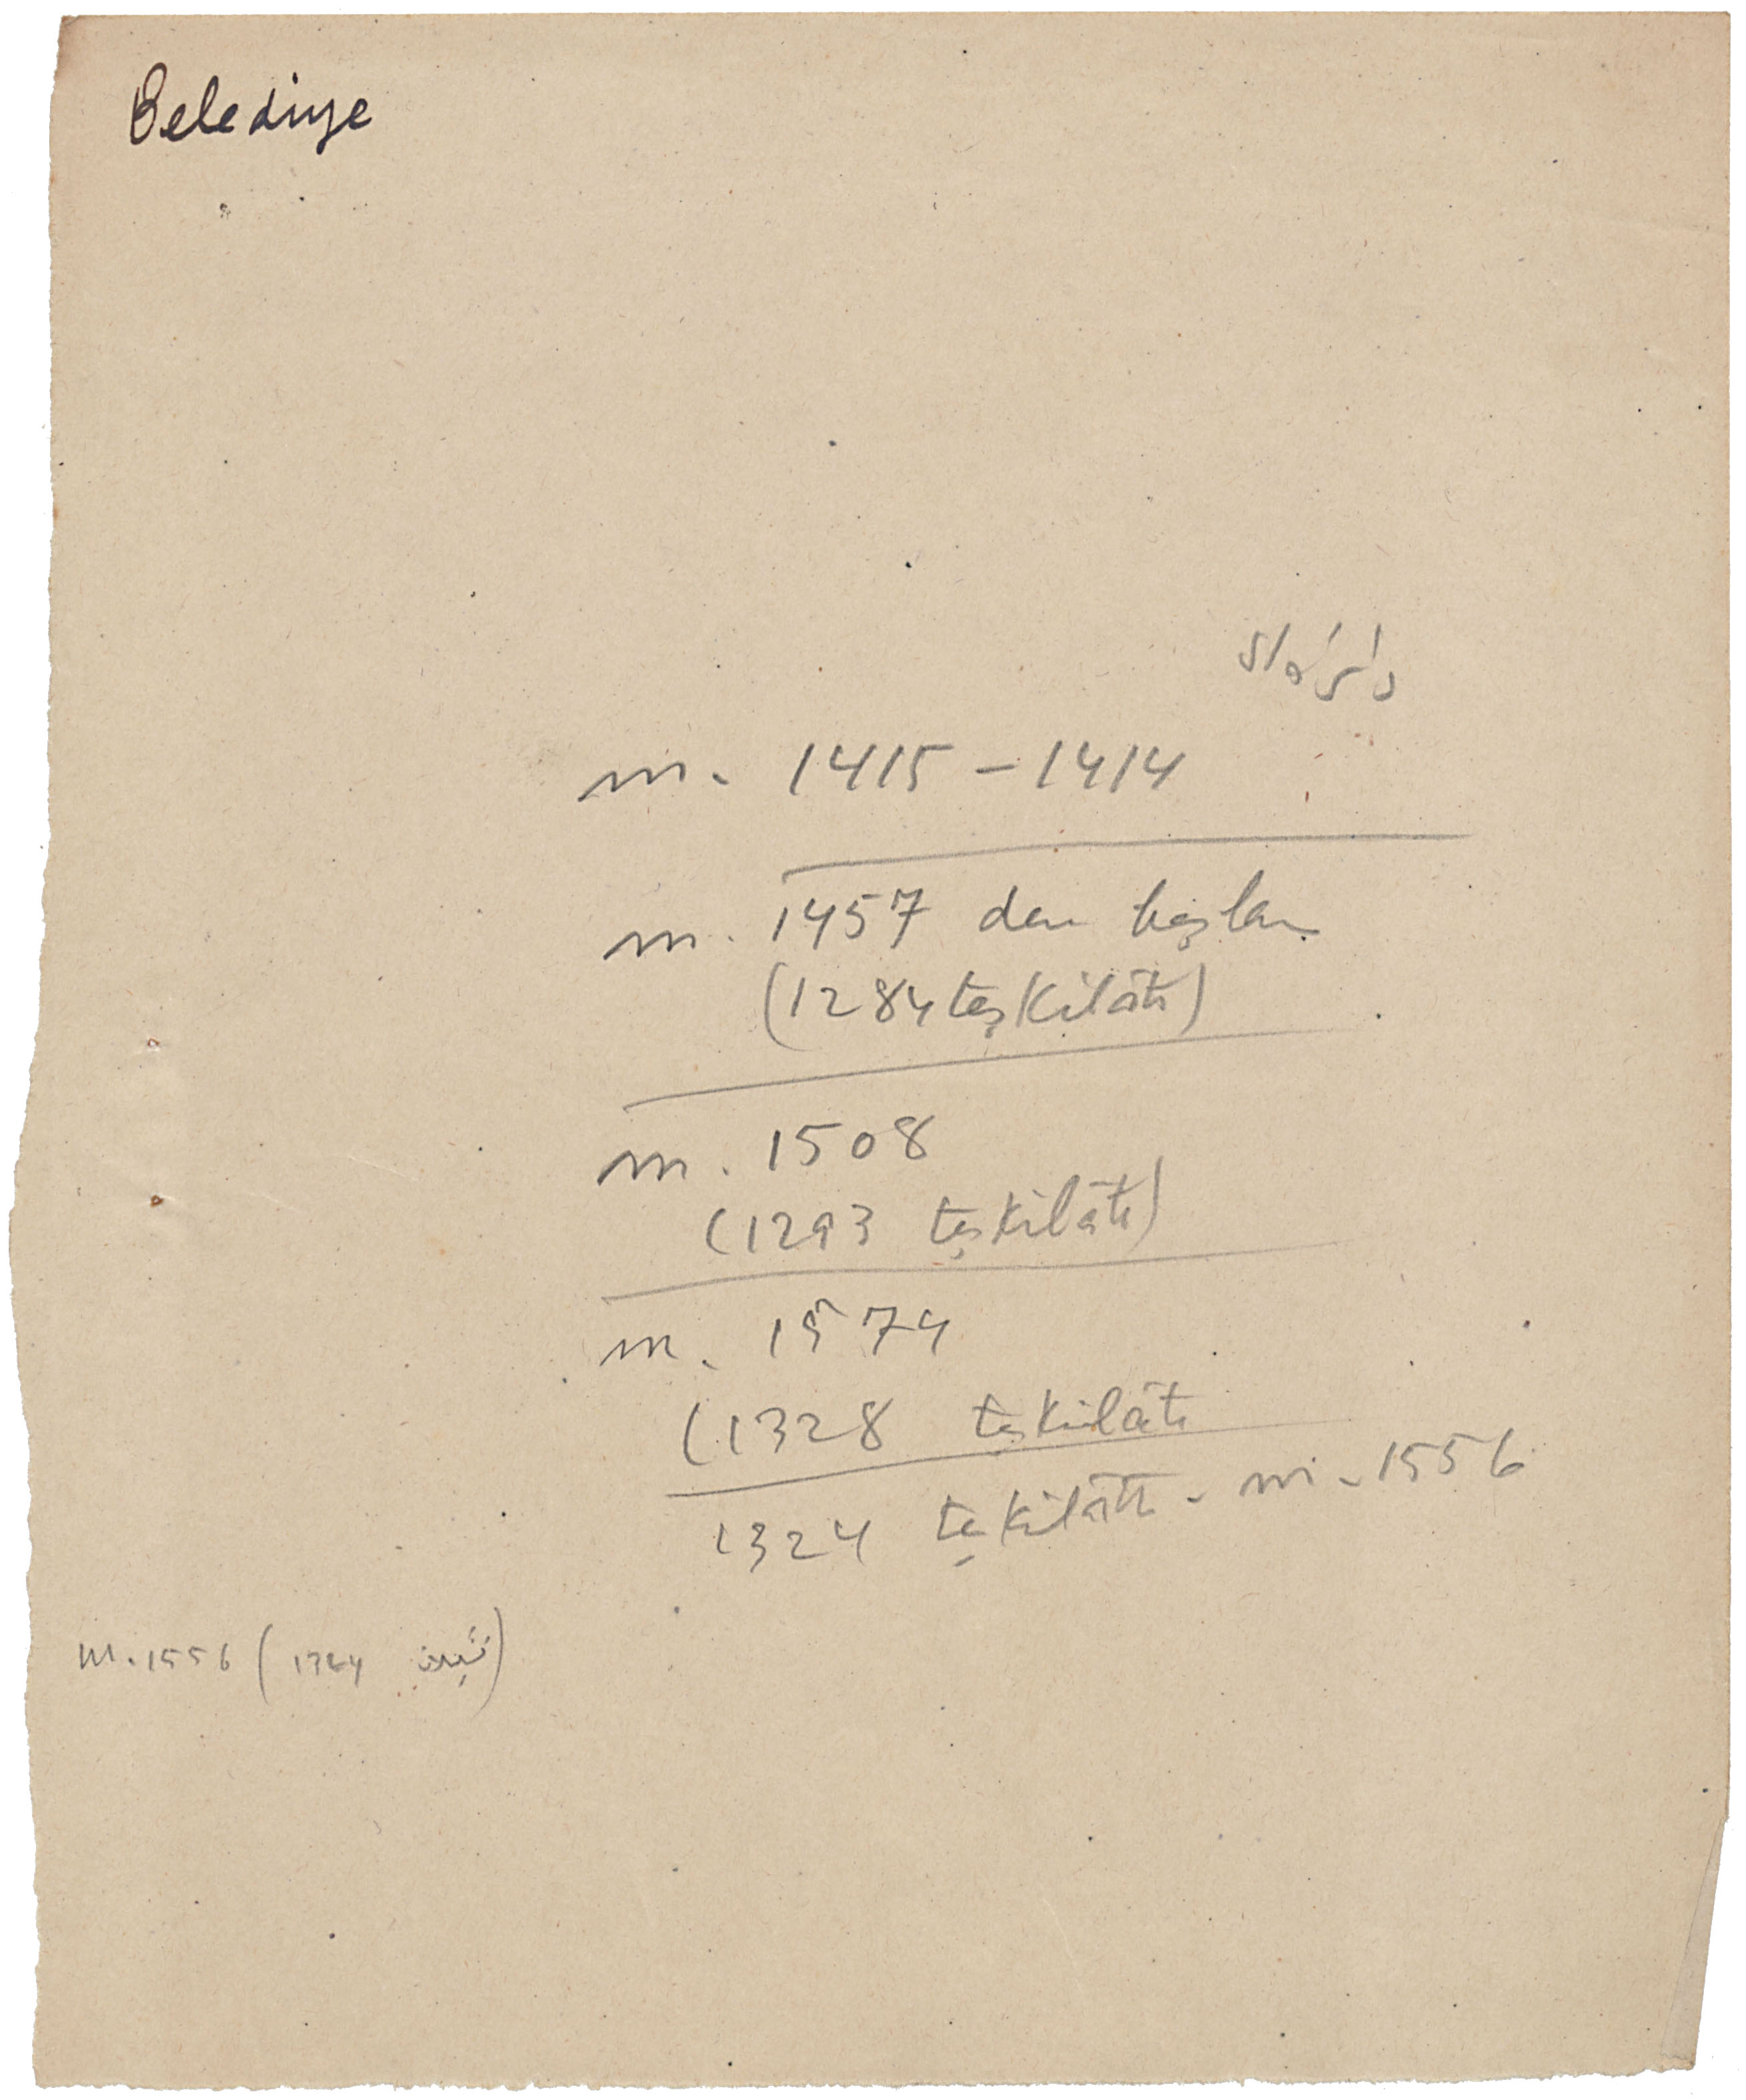 Belediye
m. 1415 - 1414
m. 1457 den başlar
(1284 teşkilâtı)
m. 1508
(1293 teşkilâtı)
m. 1574
(1328 teşkilâtı
1324 teşkilâtı - m. 1556
m. 1556 (1324